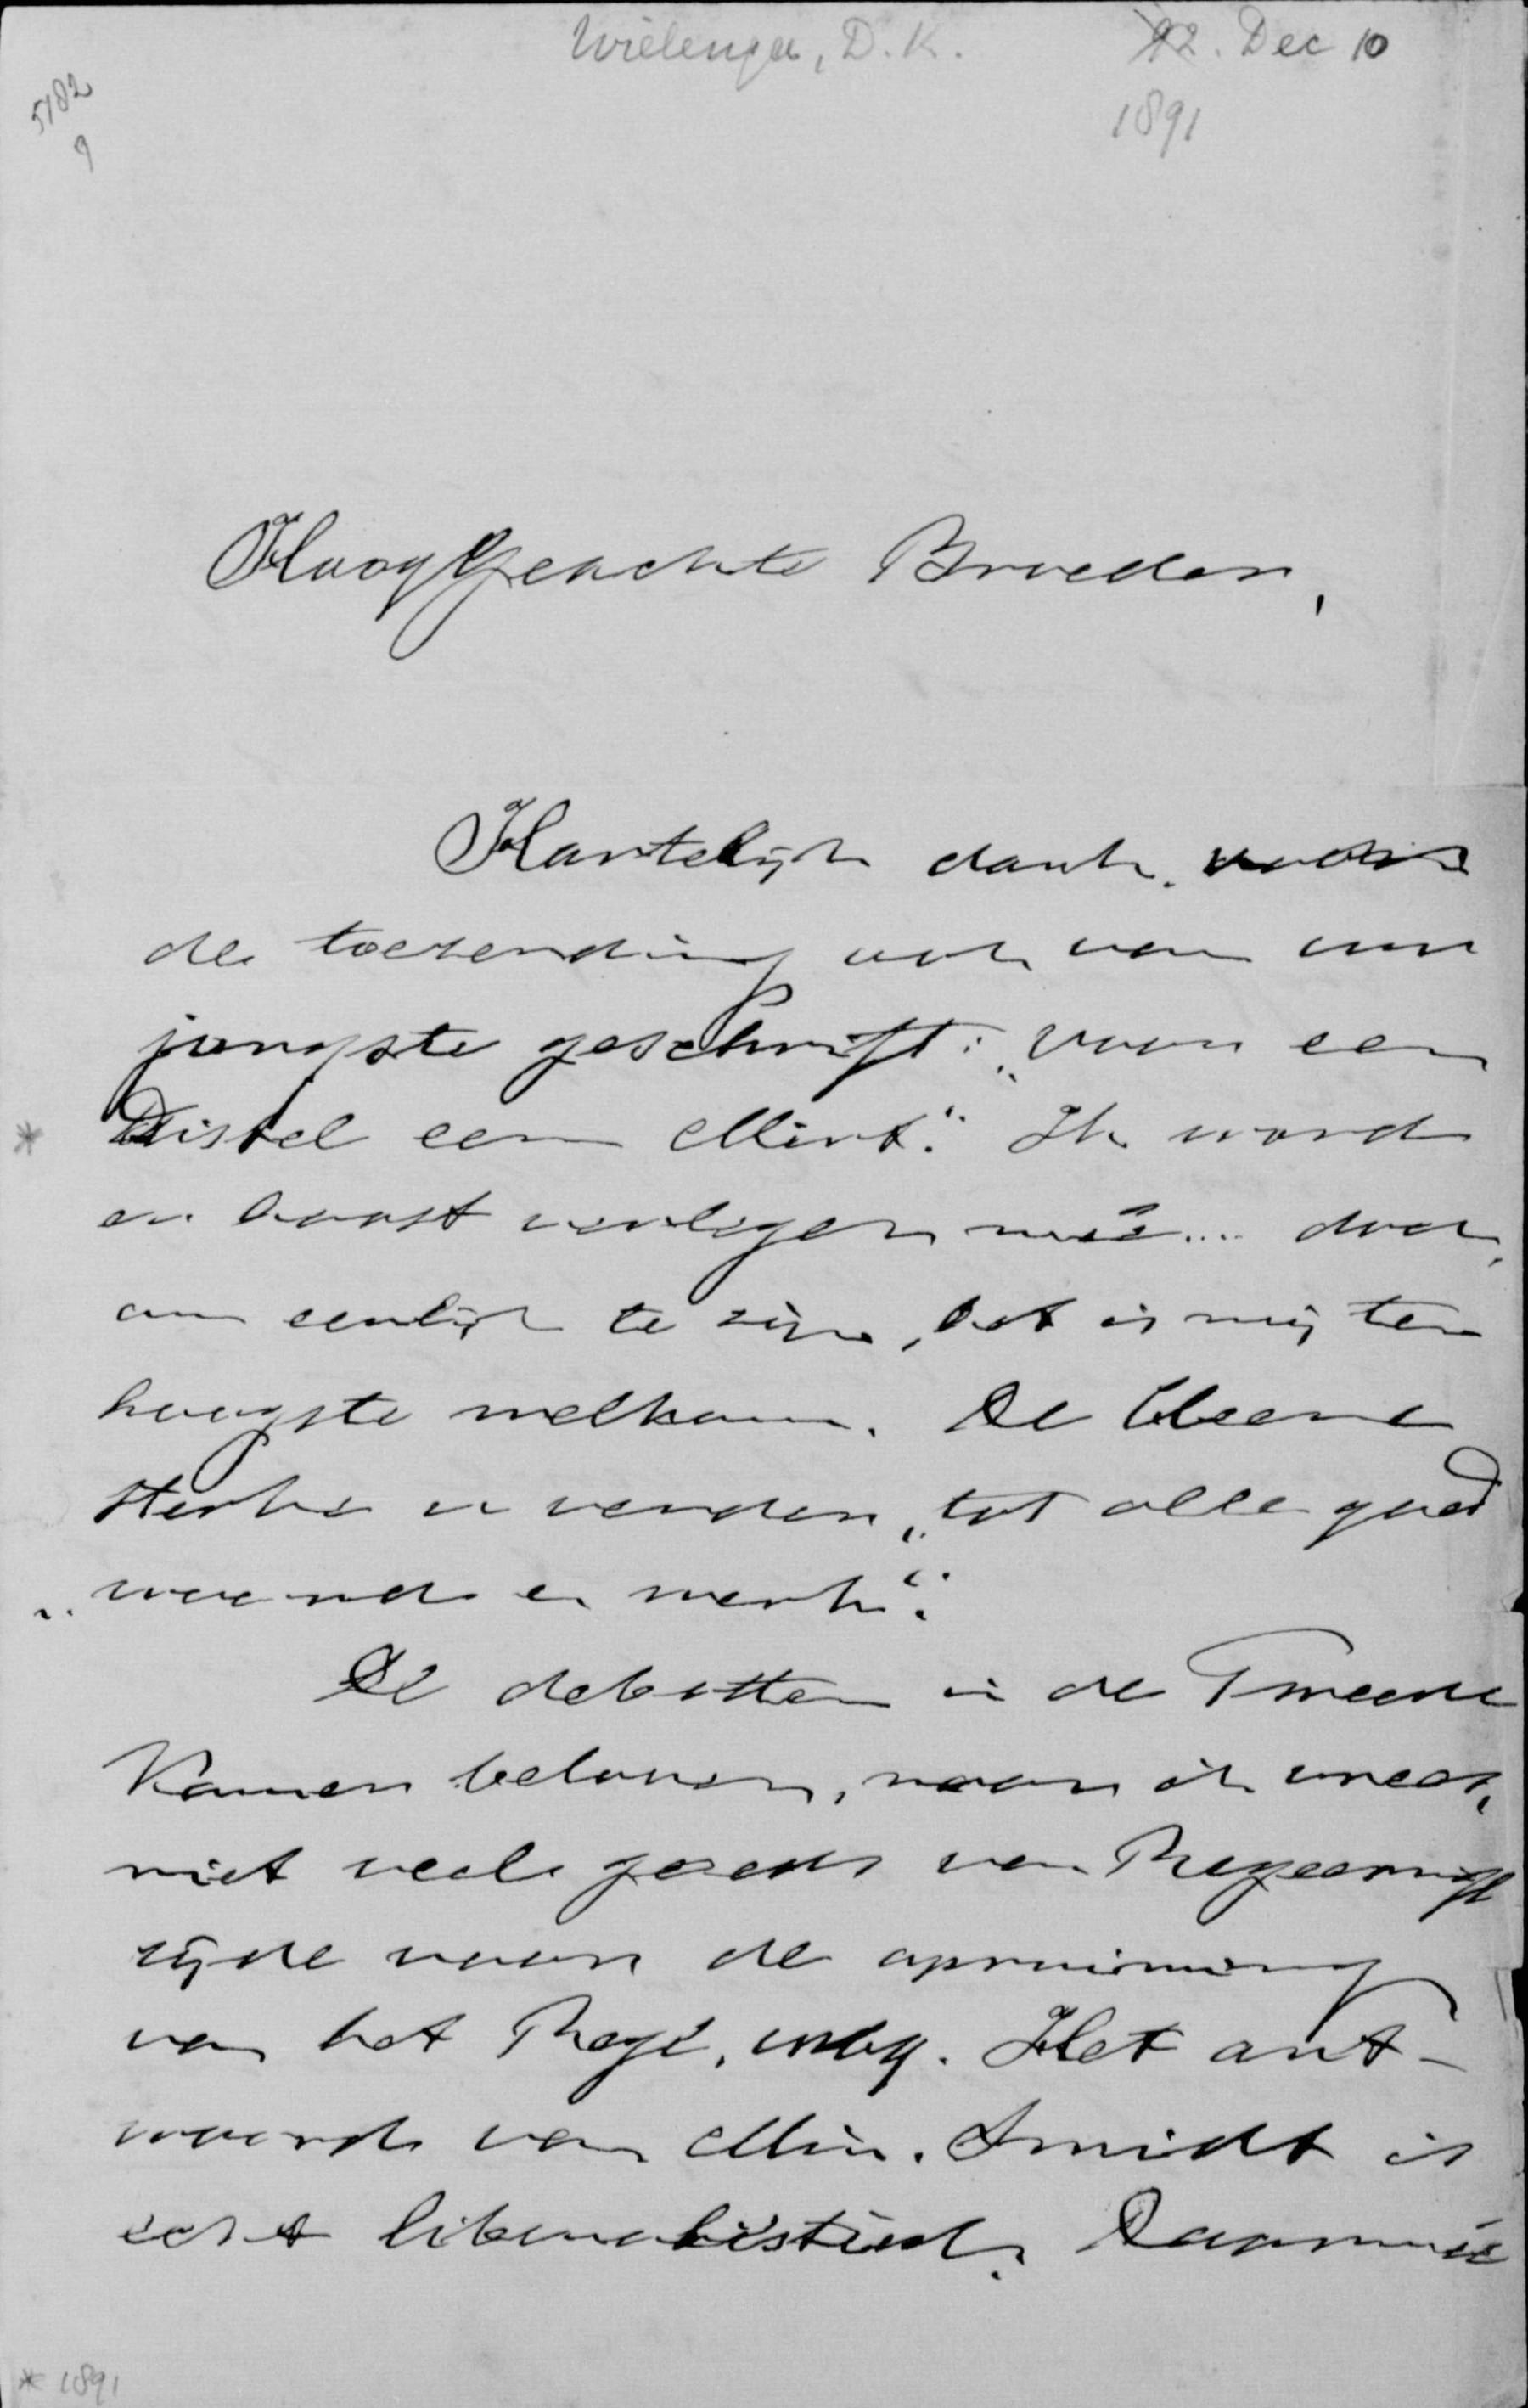 Wielenga, D.K. 12. Dec 10
1891
5182
9
HoogGeachte Broeder,
Hartelijk dank voor
de toezending ook van uw
jongste geschrift: „Voor een
* Distel een Mirt." Ik word
er haast verlegen meê.... doch,
om eerlijk te zijn, het is mij ten
hoogste welkom. De Heere
sterke u verder, „tot alle goed
„woord en werk".
De debatten in de Tweede
Kamer beloven, naar ik vrees,
niet veel goeds van Regeerings
zijde voor de opruiming
van het Regl. Het ant-
woord van Min. Smidt is
echt liberalistisch. Daarmeê
* 1891